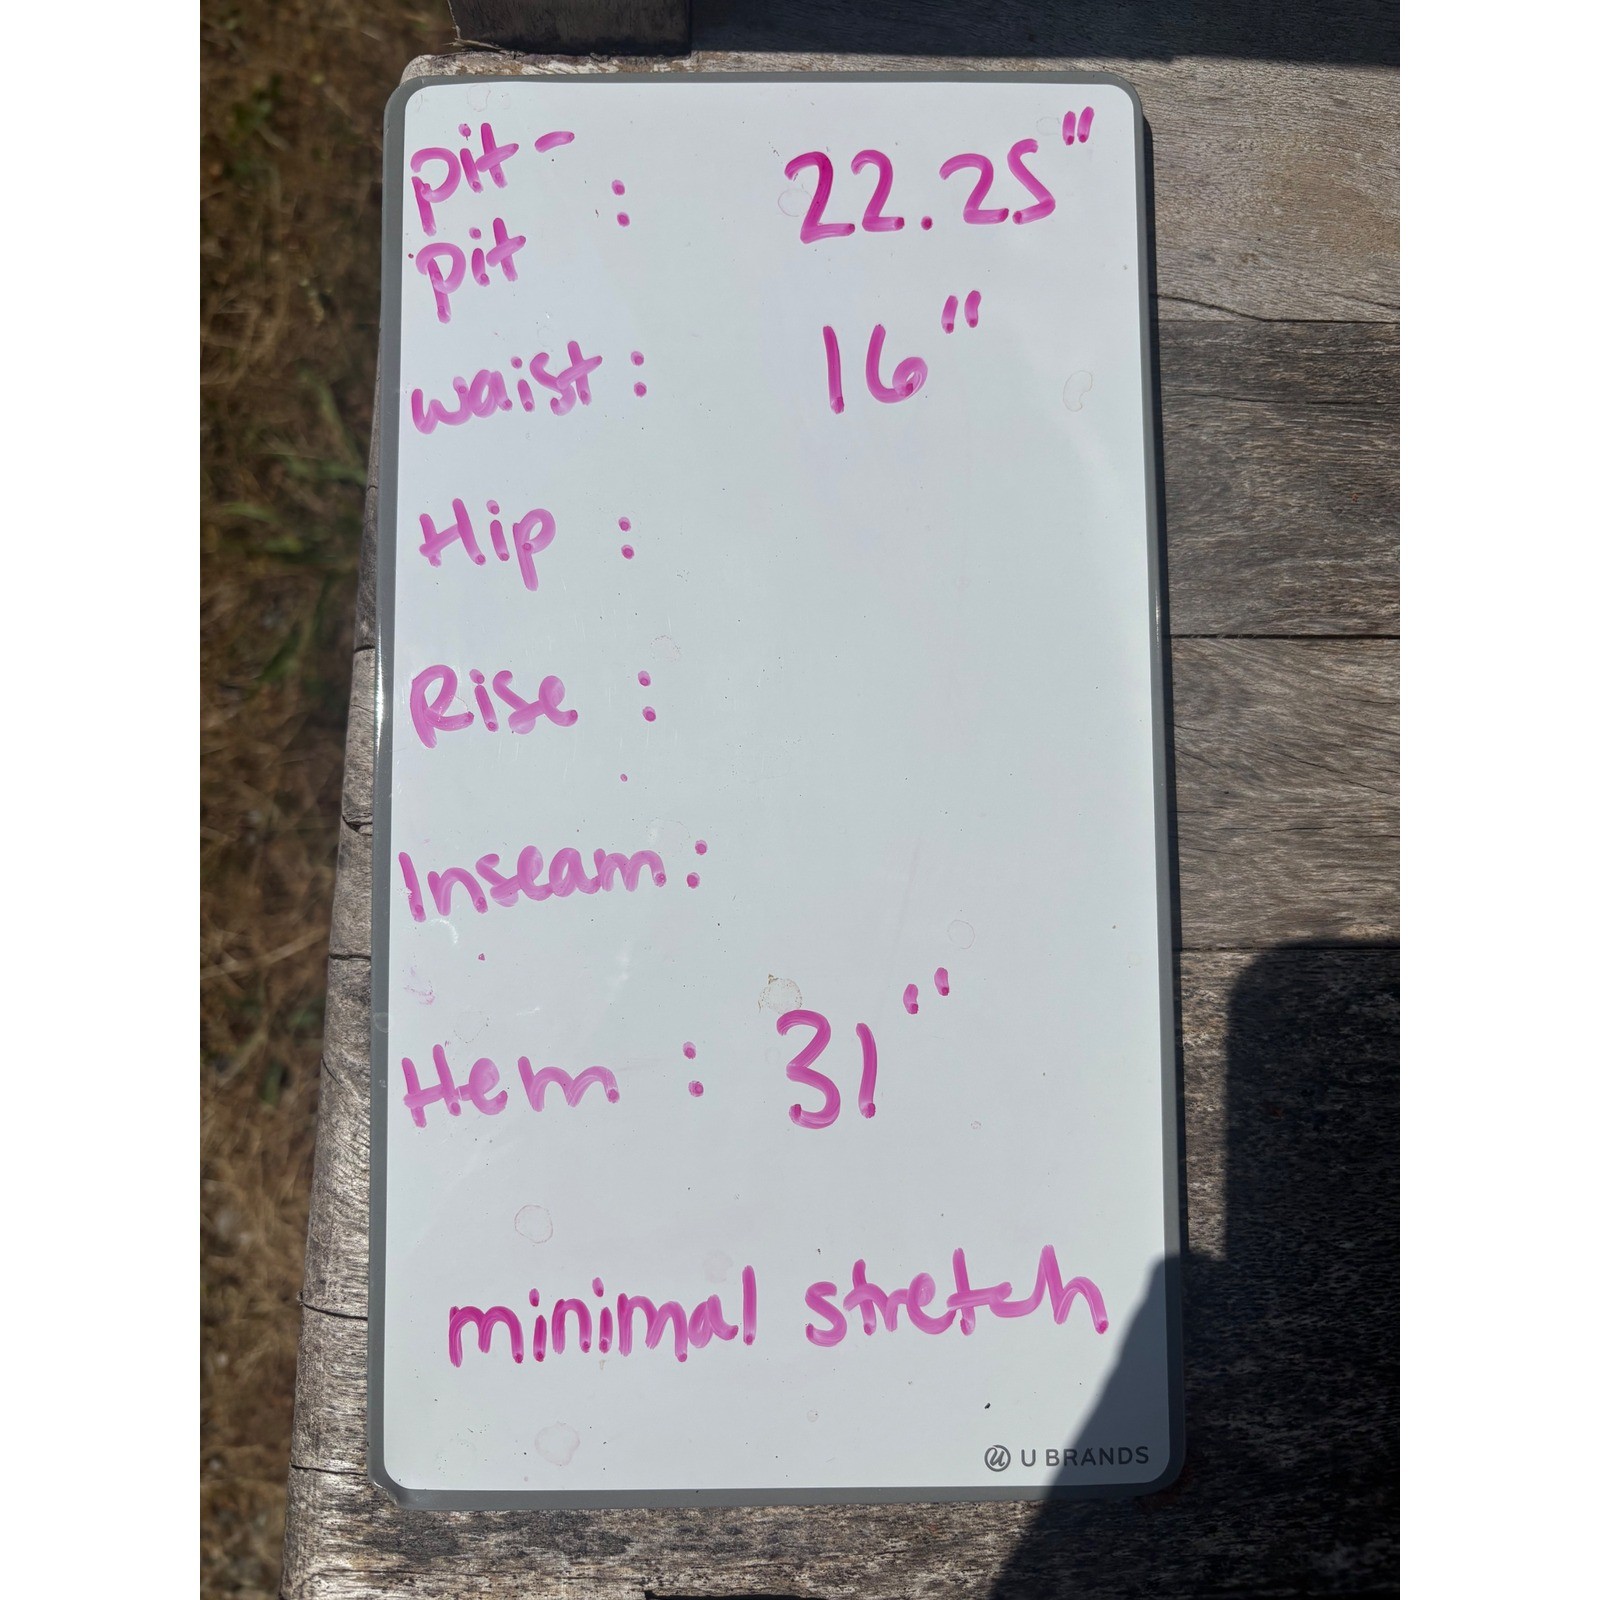 pit-
pit : 22.25"
waist : 16"
Hip :
Rise :
Inseam :
Hem : 31"
minimal stretch
U BRANDS